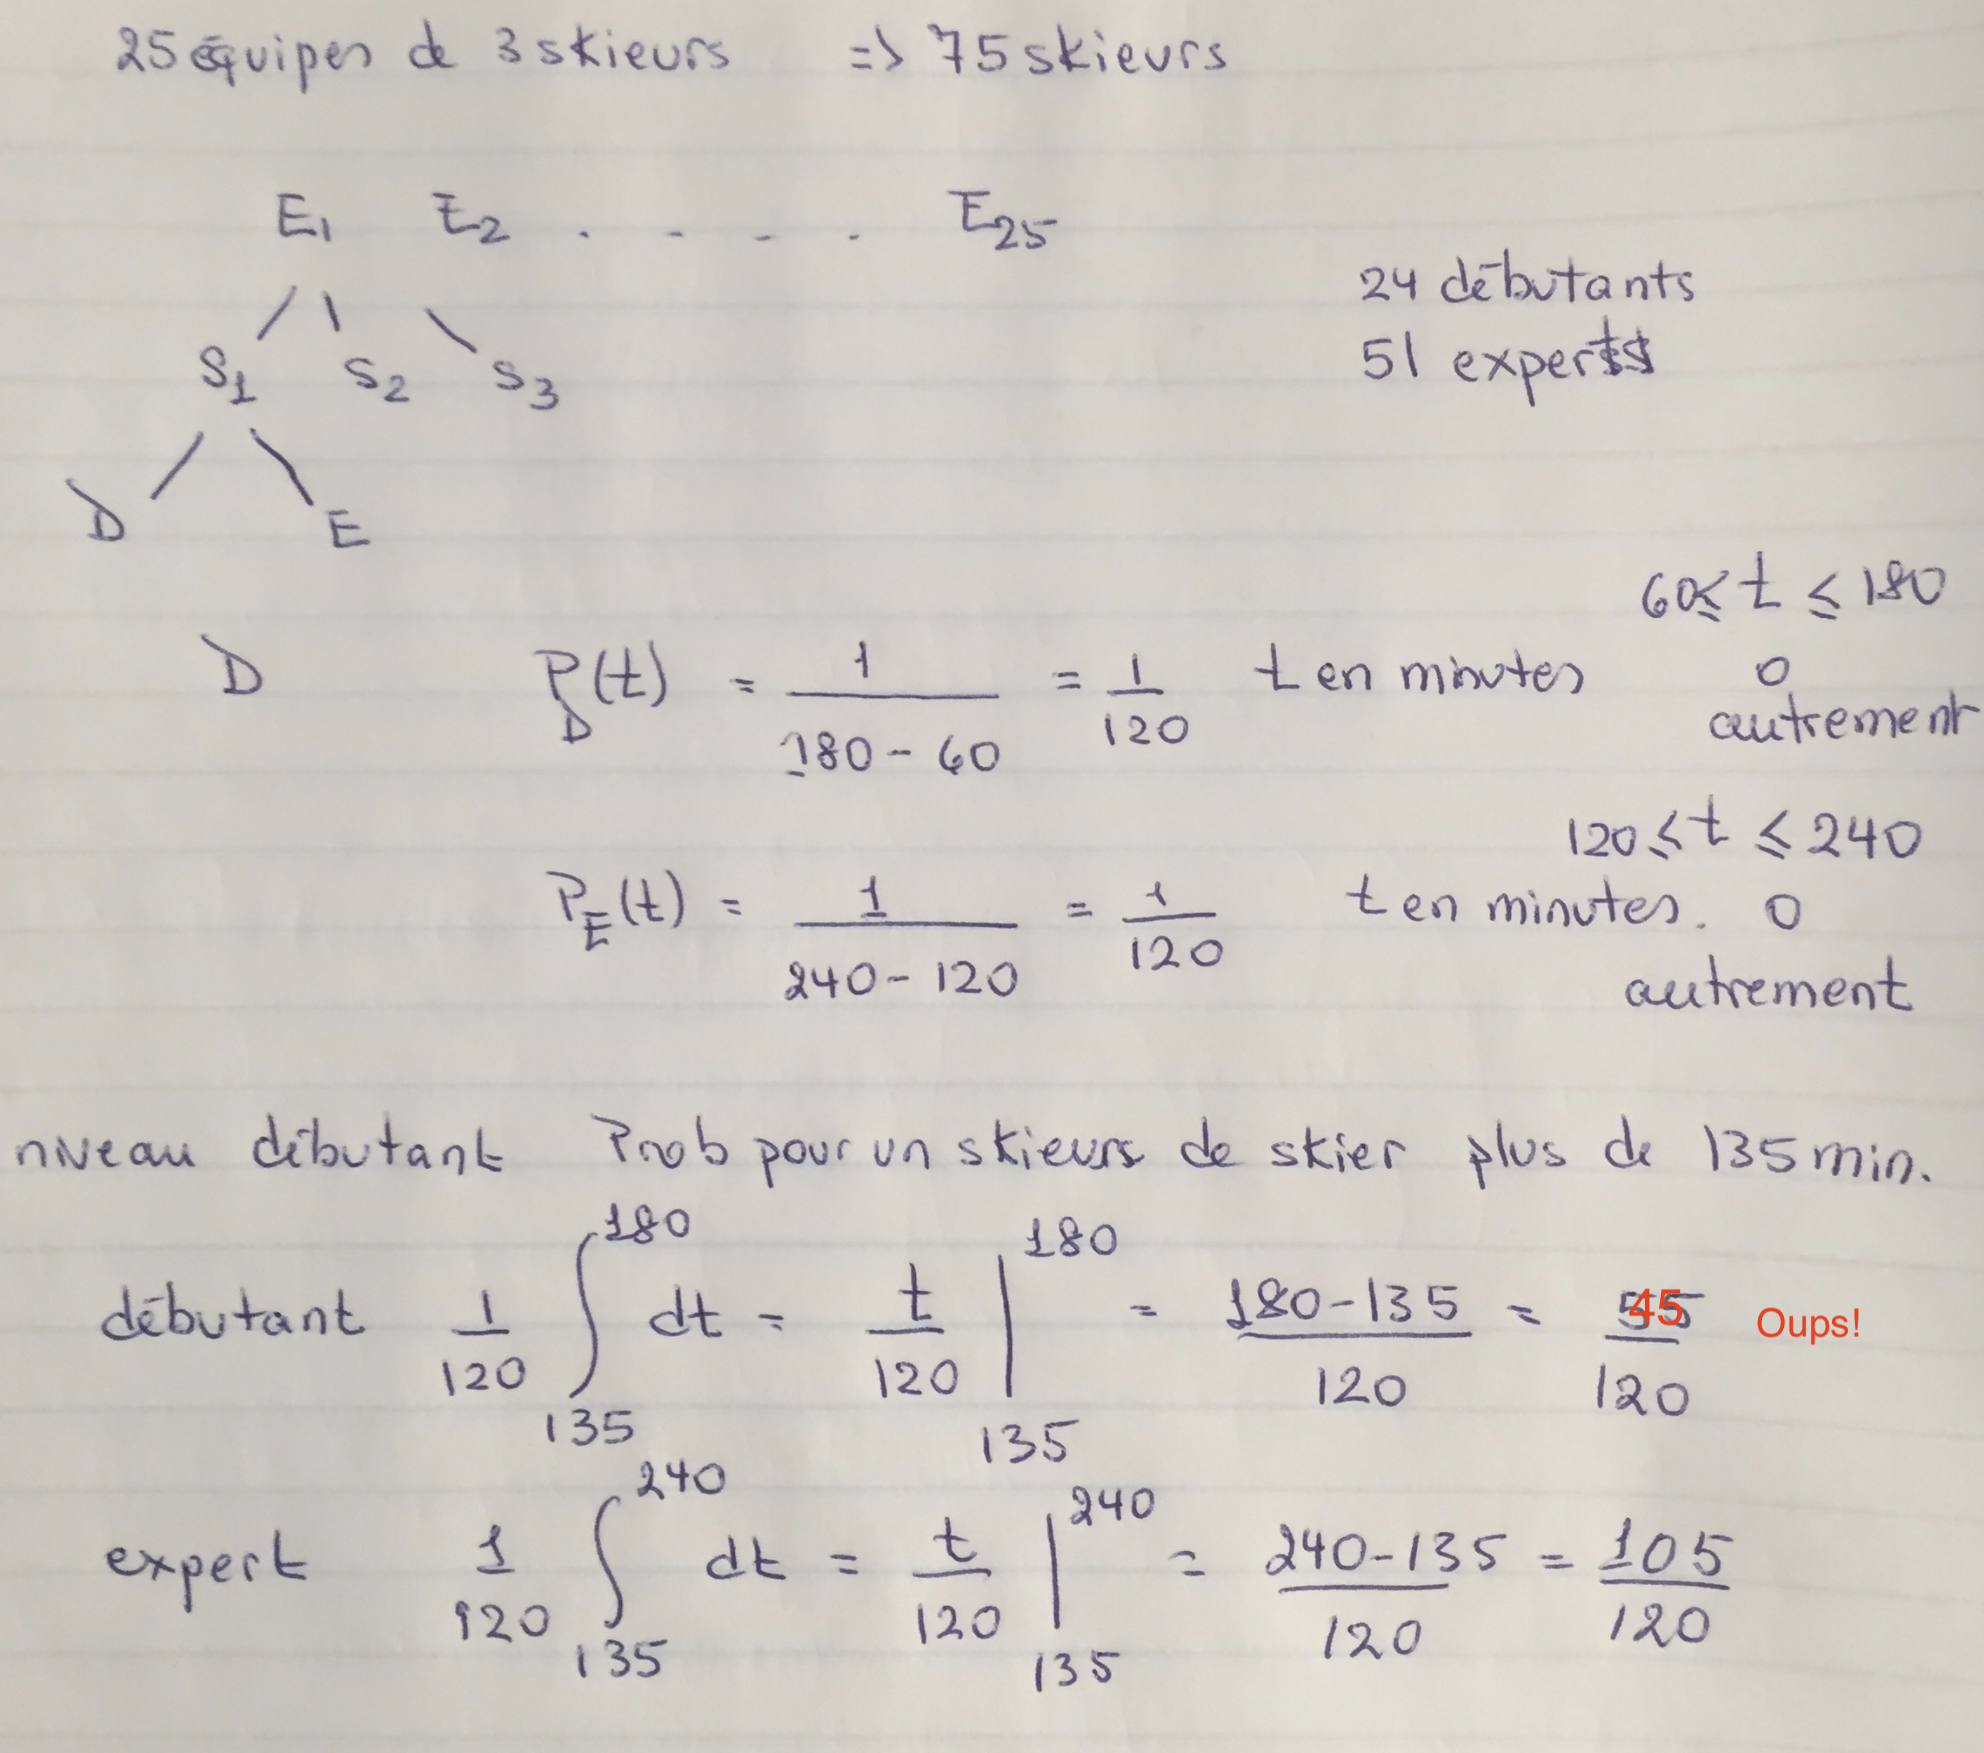 25 équipes de 3 skieurs => 75 skieurs
E1 E2 . - - . E25
24 débutants
51 experts
S1 S2 S3
D E
60 ≤ t ≤ 180
D P_D(t) = 1/(180 - 60) = 1/120 t en minutes 0
autrement
120 ≤ t ≤ 240
P_E(t) = 1/(240 - 120) = 1/120 t en minutes. 0
autrement
niveau débutant Prob pour un skieurs de skier plus de 135 min.
débutant 1/120 ∫_135^180 dt = t/120 |_135^180 = (180 - 135)/120 = 45/120 Oups!
expert 1/120 ∫_135^240 dt = t/120 |_135^240 = (240 - 135)/120 = 105/120